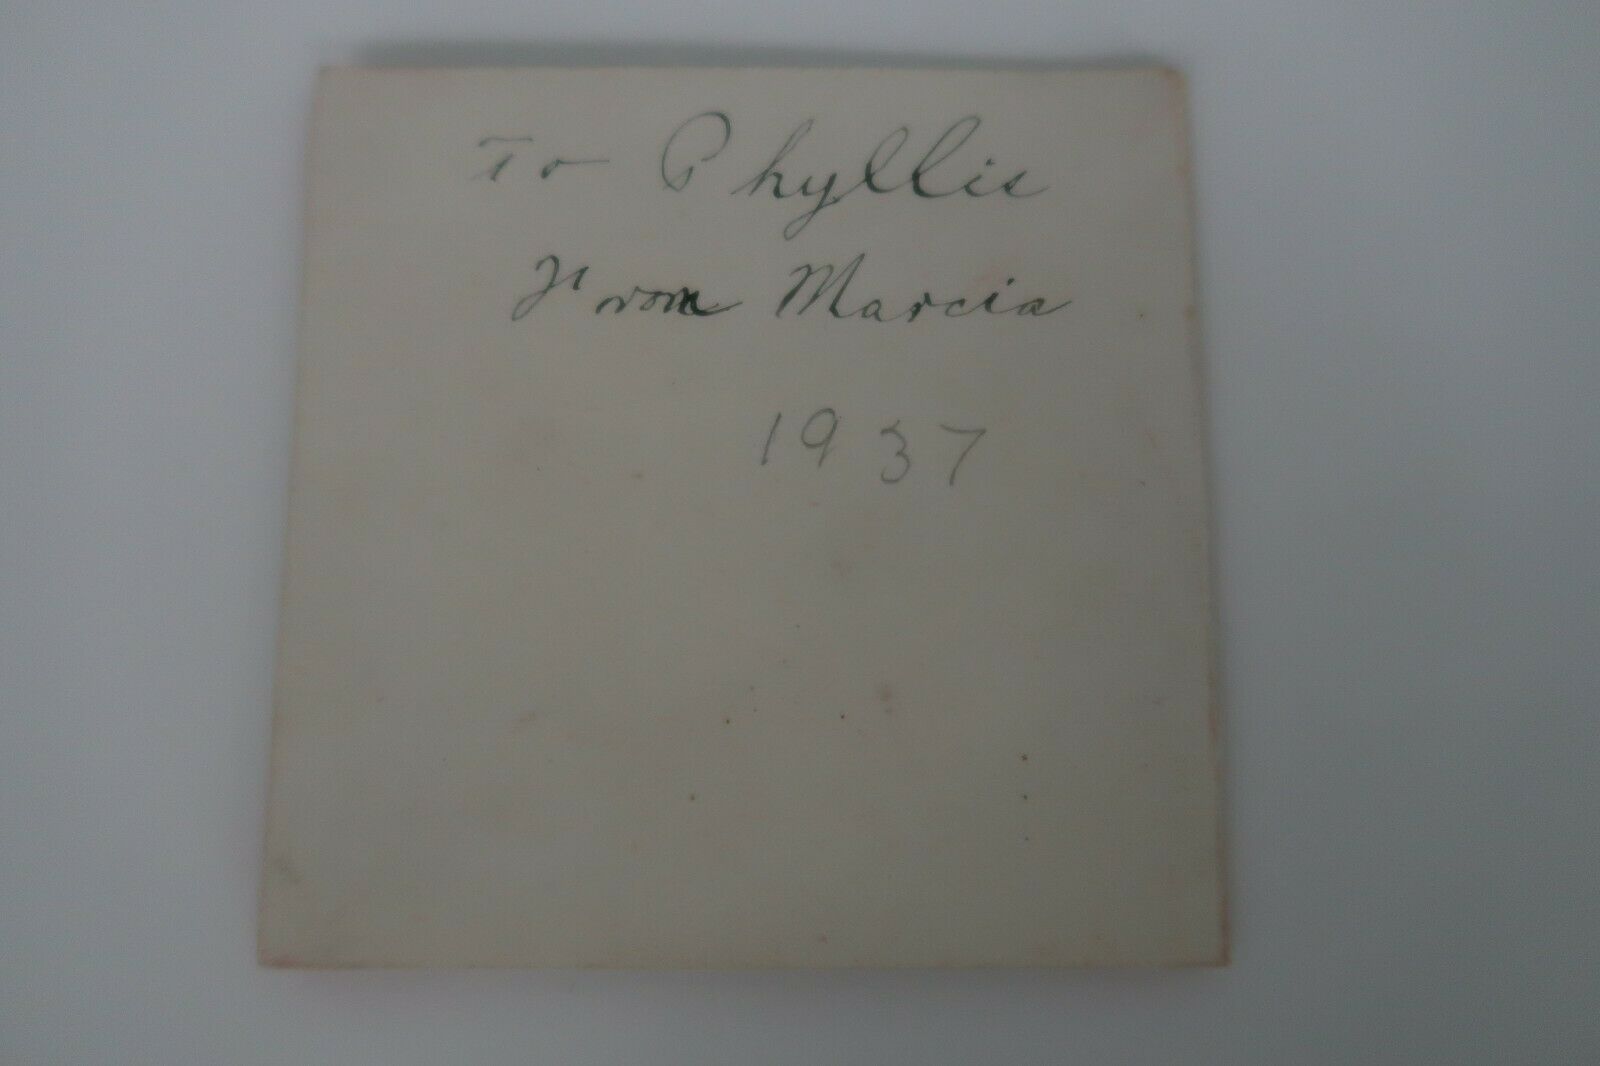 To Phyllis
From Marcia
1937